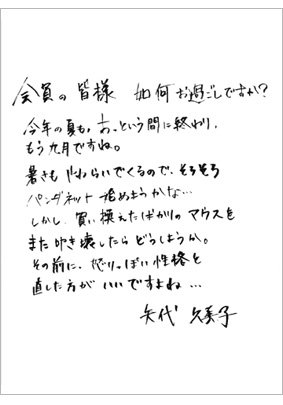 会員の皆様 如何お過ごしですか?
今年の夏も、あっという間に終わり、
もう九月ですね。
暑さもやわらいでくるので、そろそろ
パンダネット始めようかな…
しかし、買い換えたばかりのマウスを
また叩き壊したらどうしようか。
その前に、怒りっぽい性格を
直した方がいいですよね…
矢代久美子